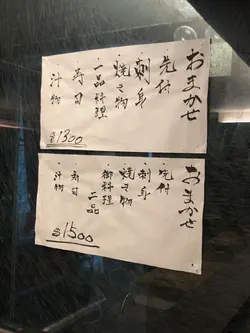 おまかせ
先付
刺身
焼き物
一品料理
寿司
汁物
$1300
おまかせ
先付
刺身
焼き物
御料理
二品
寿司
汁物
$1500